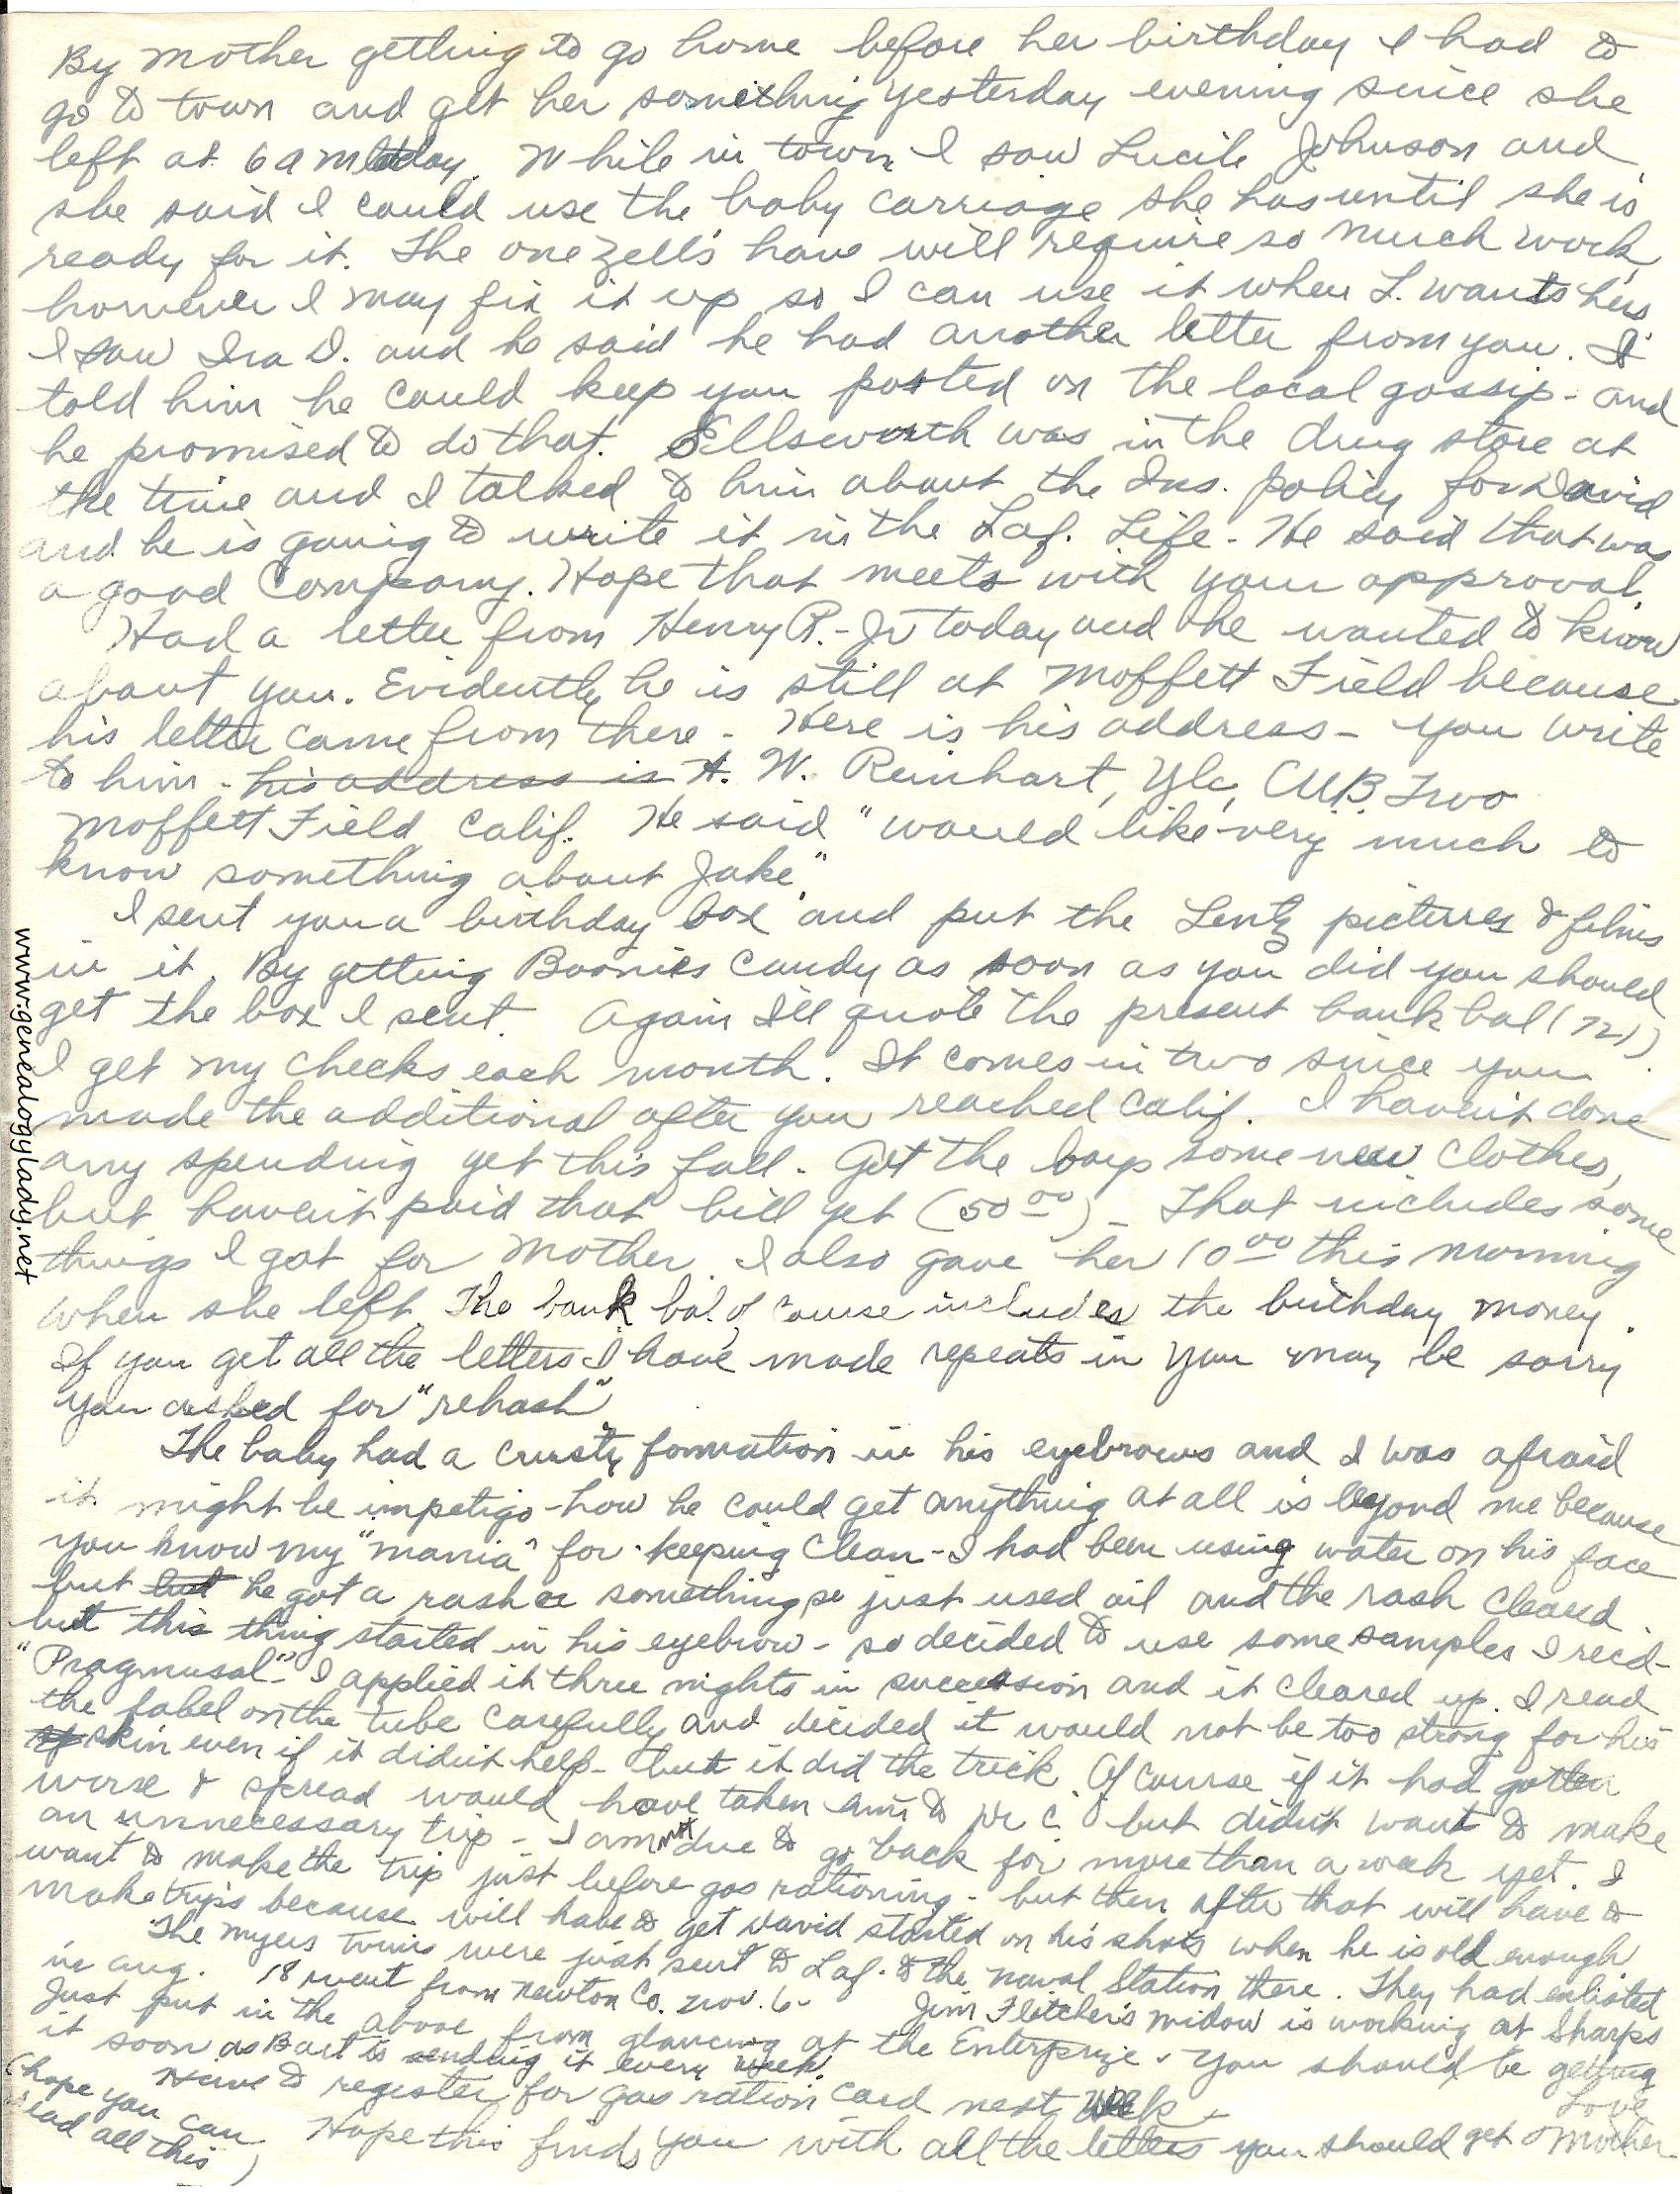 By Mother getting to go home before her birthday I had to
go to town and get her something yesterday evening since she
left at 6 a m today. While in town I saw Lucile Johnson and
she said I could use the baby carriage she has until she is
ready for it. The one Zell's have will require so much work,
however I may fix it up so I can use it when L. wants hers
I saw Ira D. and he said he had another letter from you. I
told him he could keep you posted on the local gossip - and
he promised to do that. Ellsworth was in the drug store at
the time and I talked to him about the Ins. policy for David
and he is going to write it in the Laf. Life - He said that was
a good Company. Hope that meets with your approval.
Had a letter from Henry R. - Jr today and he wanted to know
about you. Evidently he is still at Moffett Field because
his letter came from there - Here is his address - you write
to him - his address is H. W. Reinhart, Y1c, CUB Two
Moffett Field Calif. He said "would like very much to
know something about Jake."
I sent you a birthday box and put the Lentz pictures & films
in it. By getting Boonie's candy as soon as you did you should
get the box I sent. Again I'll quote the present bank bal (721).
I get my checks each month. It comes in two since you
made the additional after you reached Calif. I haven't done
any spending yet this fall - Got the boys some new clothes,
but haven't paid that bill yet (50 00) - That includes some
things I got for Mother. I also gave her 10 00 this morning
when she left. The bank bal of course includes the birthday money.
If you get all the letters I have made repeats in you may be sorry
you asked for "rehash"
The baby had a crusty formation in his eyebrows and I was afraid
it might be impetigo - how he could get anything at all is beyond me because
you know my "mania" for keeping clean - I had been using water on his face
but but he got a rash or something so just used oil and the rash cleared
but this thing started in his eyebrow - so decided to use some samples I recd -
"Pragmusal" - I applied it three nights in succession and it cleared up. I read
the label on the tube carefully and decided it would not be too strong for his
skin even if it didn't help - but it did the trick. Of course if it had gotten
worse & spread would have taken him to Dr C. but didn't want to make
an unnecessary trip - I am not due to go back for more than a week yet. I
want to make the trip just before gas rationing - but then after that will have to
make trips because will have to get David started on his shots when he is old enough
The Myers twins were just sent to Laf. to the Naval Station there. They had enlisted
in Aug. 18 went from Newton Co. Nov. 6 - Jim Fletcher's widow is working at Sharps
Just put in the above from glancing at the Enterprize - You should be getting
it soon as Bart is sending it every week.
Have to register for gas ration card next week -
Hope this finds you with all the letters you should get
Love
Mother
(hope you can
read all this)
www.genealogylady.net